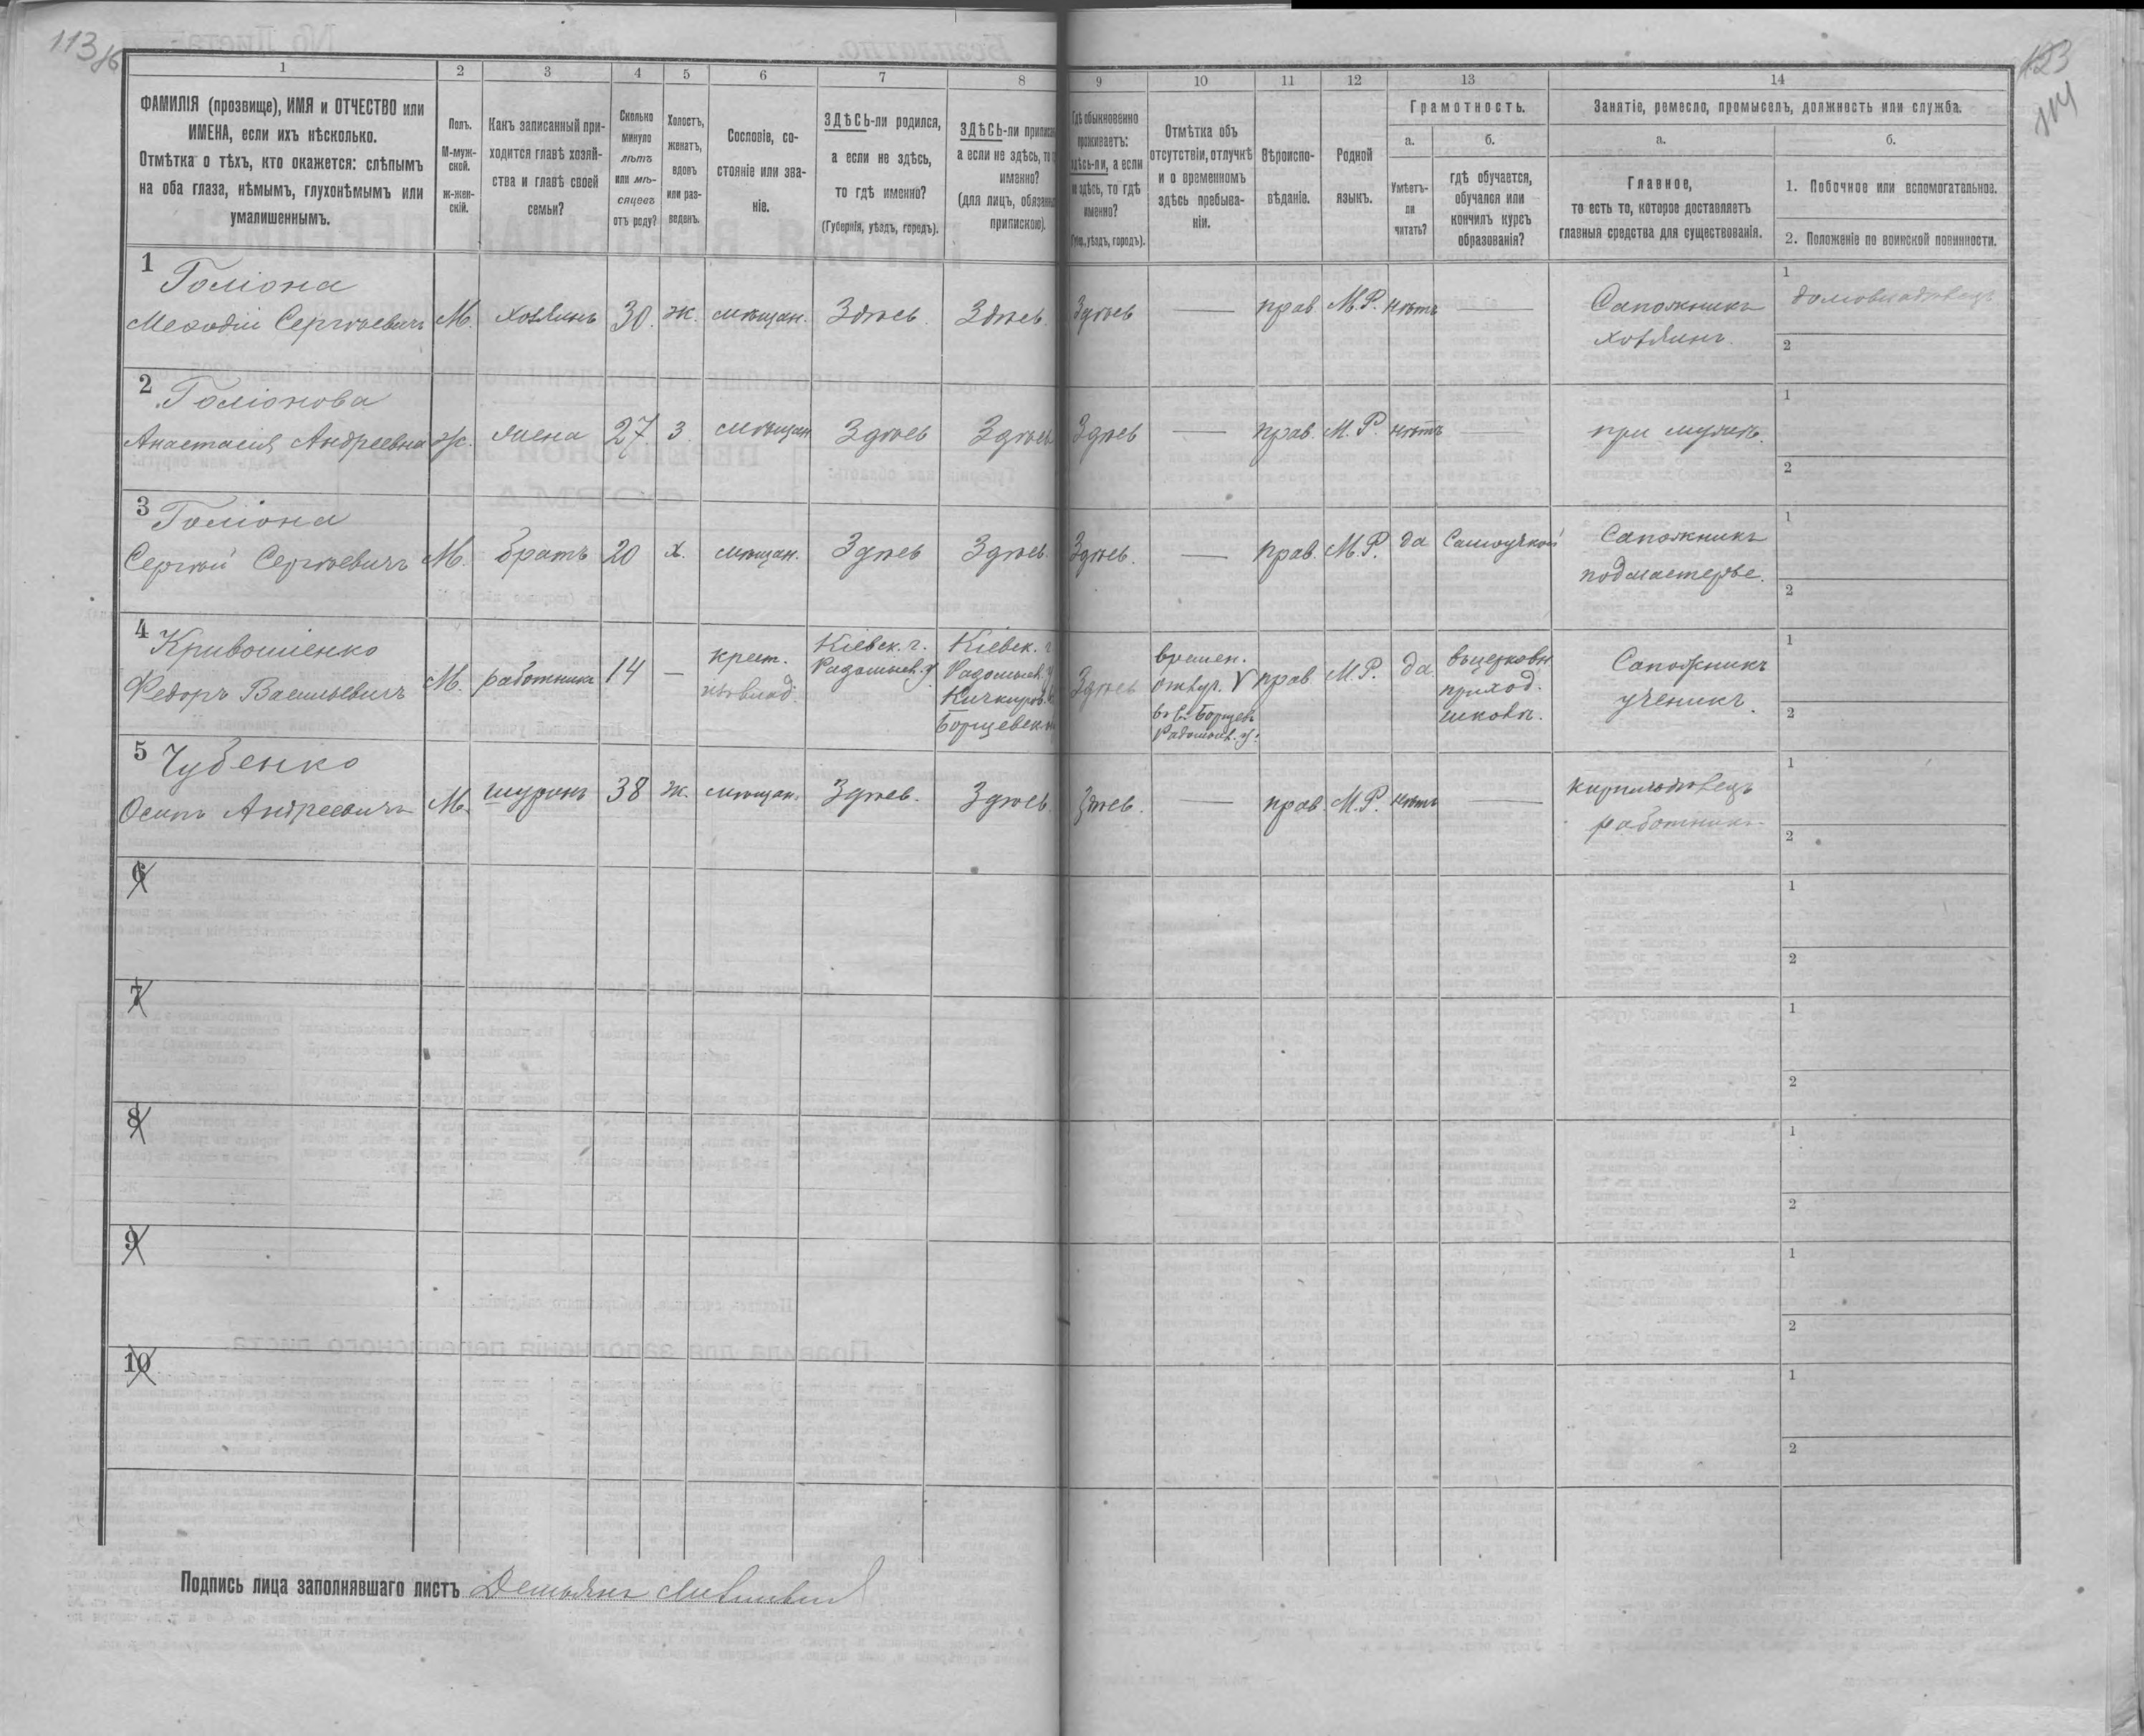 113
1 2 3 4 5 6 7 8 9 10 11 12 13 14
ФАМИЛІЯ (прозвище), ИМЯ и ОТЧЕСТВО или
ИМЕНА, если ихъ нѣсколько.
Отмѣтка о тѣхъ, кто окажется: слѣпымъ
на оба глаза, нѣмымъ, глухонѣмымъ или
умалишеннымъ.
Полъ.
М-муж-
ской.
ж-жен-
скій.
Какъ записанный при-
ходится главѣ хозяй-
ства и главѣ своей
семьи?
Сколько
минуло
лѣтъ
или мѣ-
сяцевъ
отъ роду?
Холостъ,
женатъ,
вдовъ
или раз-
веденъ.
Сословіе, со-
стояніе или зва-
ніе.
ЗДѢСЬ-ли родился,
а если не здѣсь,
то гдѣ именно?
(Губернія, уѣздъ, городъ).
ЗДѢСЬ-ли приписанъ
а если не здѣсь, то
именно?
(для лицъ, обязан
припискою).
Гдѣ обыкновенно
проживаетъ:
здѣсь-ли, а если
не здѣсь, то гдѣ
именно?
уѣздъ, городъ).
Отмѣтка объ
отсутствіи, отлучкѣ
и о временномъ
здѣсь пребыва-
ніи.
Вѣроиспо-
вѣданіе.
Родной
языкъ.
Грамотность.
а.
Умѣетъ-
ли
читать?
б.
гдѣ обучается,
обучался или
кончилъ курсъ
образованія?
Занятіе, ремесло, промыселъ, должность или служба.
а.
Главное,
то есть то, которое доставляетъ
главныя средства для существованія.
б.
1. Побочное или вспомогательное.
2. Положеніе по воинской повинности.
1 Голіона
Мефодій Сергѣевичъ М. хозяинъ 30. ж. мѣщан. Здѣсь Здѣсь Здѣсь — прав. М.Р. нѣтъ — Сапожникъ
хозяинъ.
1
2
2 Голіонова
Анастасія Андреевна ж. жена 27 з. мѣщан. Здѣсь Здѣсь Здѣсь — прав. М.Р. нѣтъ — при мужѣ.
1
2
3 Голіона
Сергѣй Сергѣевичъ М. братъ 20 х. мѣщан. Здѣсь Здѣсь Здѣсь. — прав. М.Р. да Самоучкой Сапожникъ
подмастерье.
1
2
4 Кривошіенко
Федоръ Васильевичъ М. работникъ 14 —
крест.
Кіевск. г.
Радомысл. у.
Кіевск. г.
Радомысл. у.
Борщевск.
Здѣсь
времен.
отлуч.
въ с. Борщев
Радомысл. у.
прав. М.Р. да
въ церковн
приход.
школѣ.
Сапожникъ
ученикъ.
1
2
5 Чубенко
Осипъ Андреевичъ М. шуринъ 38 ж. мѣщан. Здѣсь. Здѣсь. Здѣсь. — прав. М.Р. нѣтъ —
работникъ
1
2
6
1
2
7
1
2
8
1
2
9
1
2
10
1
2
Подпись лица заполнявшаго листъ Демьянъ